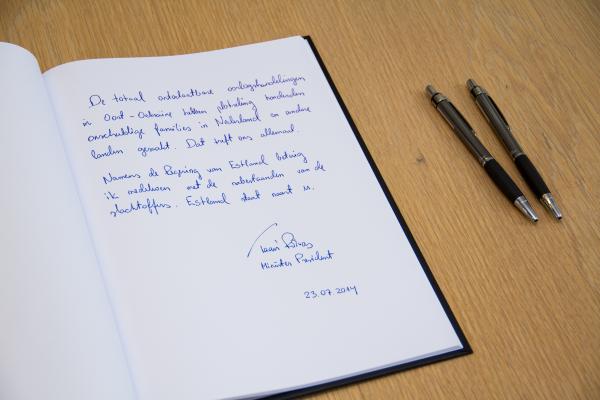 De totaal ontoelaatbare oorlogshandelingen
in Oost-Oekraïne hebben plotseling honderden
onschuldige families in Nederland en andere
landen geraakt. Dat treft ons allemaal.
Namens de Regering van Estland betuig
ik medeleven met de nabestaanden van de
slachtoffers. Estland staat naast u.
Taavi Rõivas
Minister President
23.07.2014